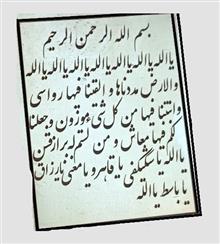 بسم الله الرحمن الرحيم
يا الله يا الله يا الله يا الله يا الله يا الله يا الله
والارض مددناها و القينا فيها رواسى
وانبتنا فيها من كل شئ موزون وجعلنا
لكم فيها معايش و من لستم له برازقين
يا الله يا قاهر و يا مغنى يا رزاق
يا باسط يا الله